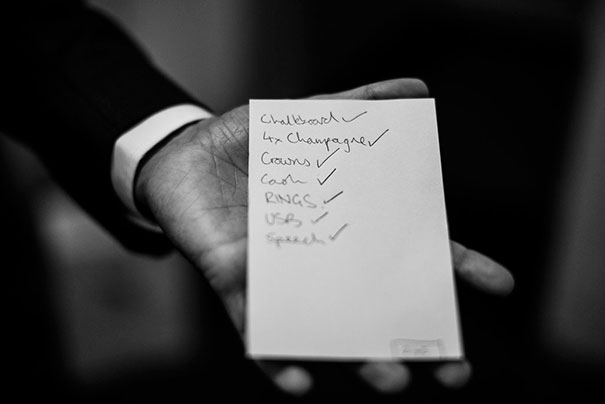 Chalkboard ✓
4x Champagne ✓
Crowns ✓
Cash ✓
RINGS ✓
USB ✓
Speech ✓